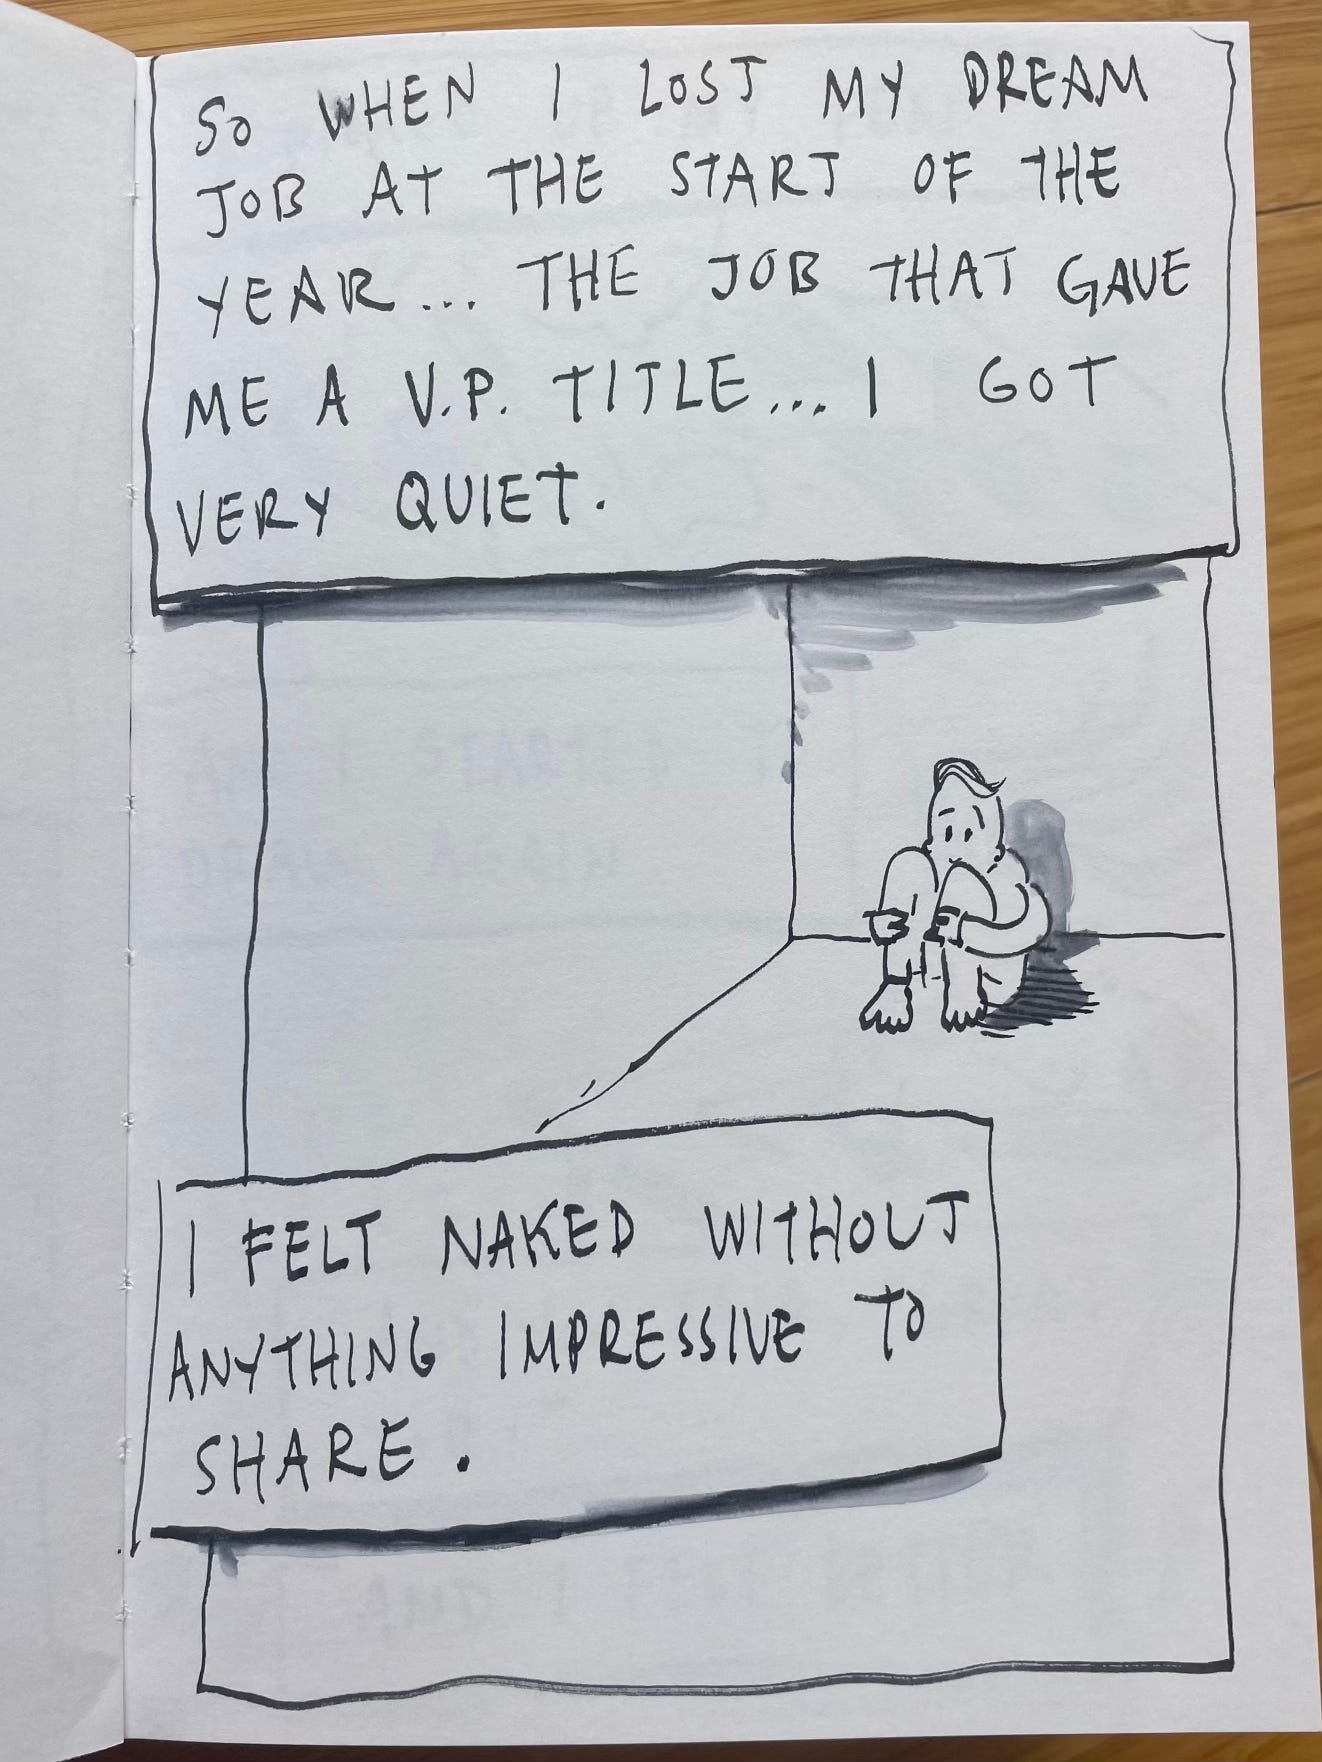 SO WHEN I LOST MY DREAM
JOB AT THE START OF THE
YEAR... THE JOB THAT GAVE
ME A V.P. TITLE... I GOT
VERY QUIET.
I FELT NAKED WITHOUT
ANYTHING IMPRESSIVE TO
SHARE.